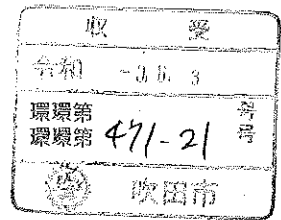 収 受
令和 -3.6. 3
環環第 号
環環第 471-21 号
吹田市